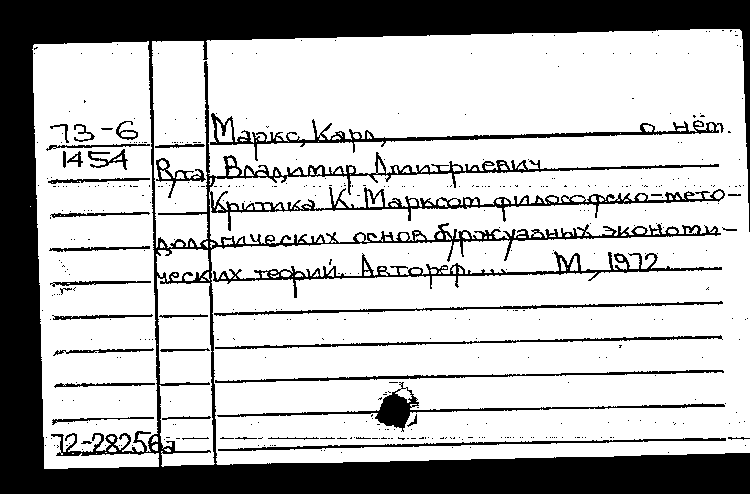 73-6 Маркс, Карл, о нём.
1454
Владимир Дмитриевич
Критика К. Марксом философско-мето-
дологических основ буржуазных экономи-
ческих теорий. Автореф. ... М., 1972.
72-28256а